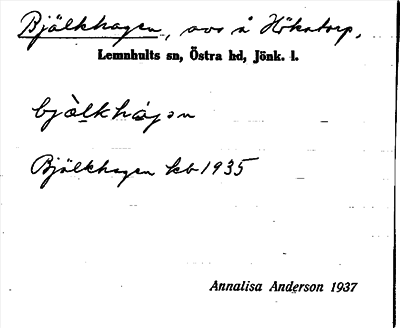 Bjälkhagen, avs å Hökatorp,
Lemnhults sn, Östra hd, Jönk. l.
bjàlkhágən
Bjälkhagen kb 1935
Annalisa Anderson 1937